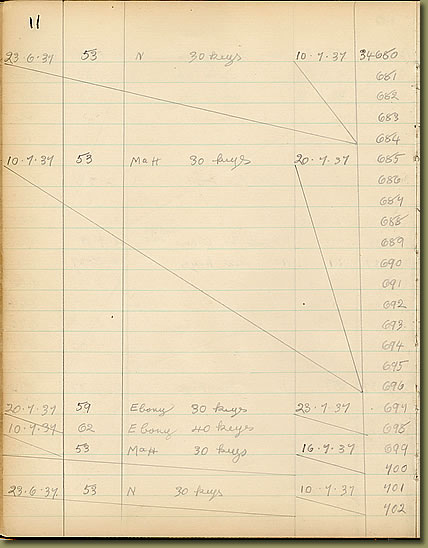 11
23.6.37 53 N 30 keys 10.7.37 34680
681
682
683
684
10.7.37 53 MaH 30 keys 20.7.37 685
686
687
688
689
690
691
692
693
694
695
696
20.7.37 59 Ebony 30 keyes 23.7.37 697
10.7.37 62 Ebony 40 keyes 698
53 MaH 30 keys 16.7.37 699
700
23.6.37 53 N 30 keys 10.7.37 701
702